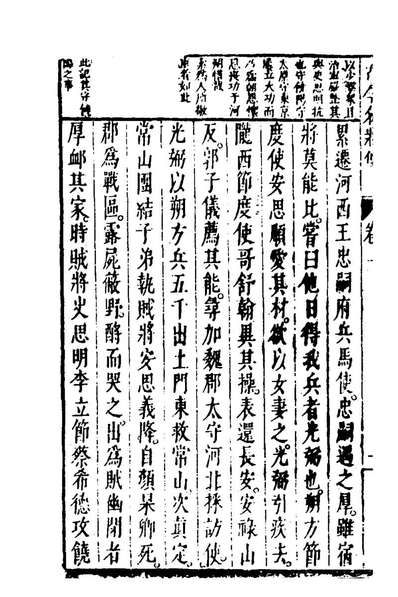 卷
與史思明抗
太原守東京
屢立大功而
此記其守饒
陽之事
累遷河西王忠嗣府兵馬使。忠嗣遇之厚。雖宿
將莫能比。嘗曰他日得我兵者光弼也。朔方節
度使安思順愛其材。欲以女妻之。光弼引疾去。
隴西節度使哥舒翰異其操。表還長安。安祿山
反。郭子儀薦其能。尋加魏郡太守河北採訪使。
光弼以朔方兵五千出土門東救常山次真定。
常山團結子弟執賊將安思義降。自顏杲卿死。
郡為戰區。露屍蔽野。酹而哭之。出為賊幽閉者
厚卹其家。時賊將史思明李立節蔡希德攻饒